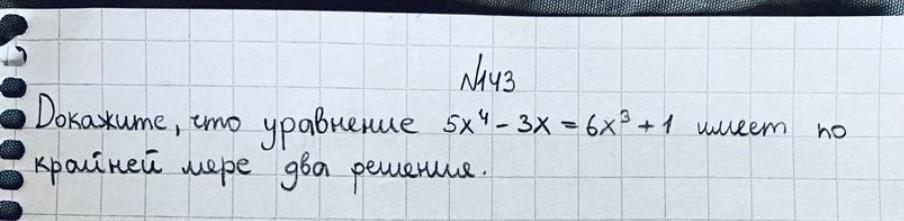 №143
Докажите, что уравнение 5x⁴ - 3x = 6x³ + 1 имеет по
крайней мере два решения.